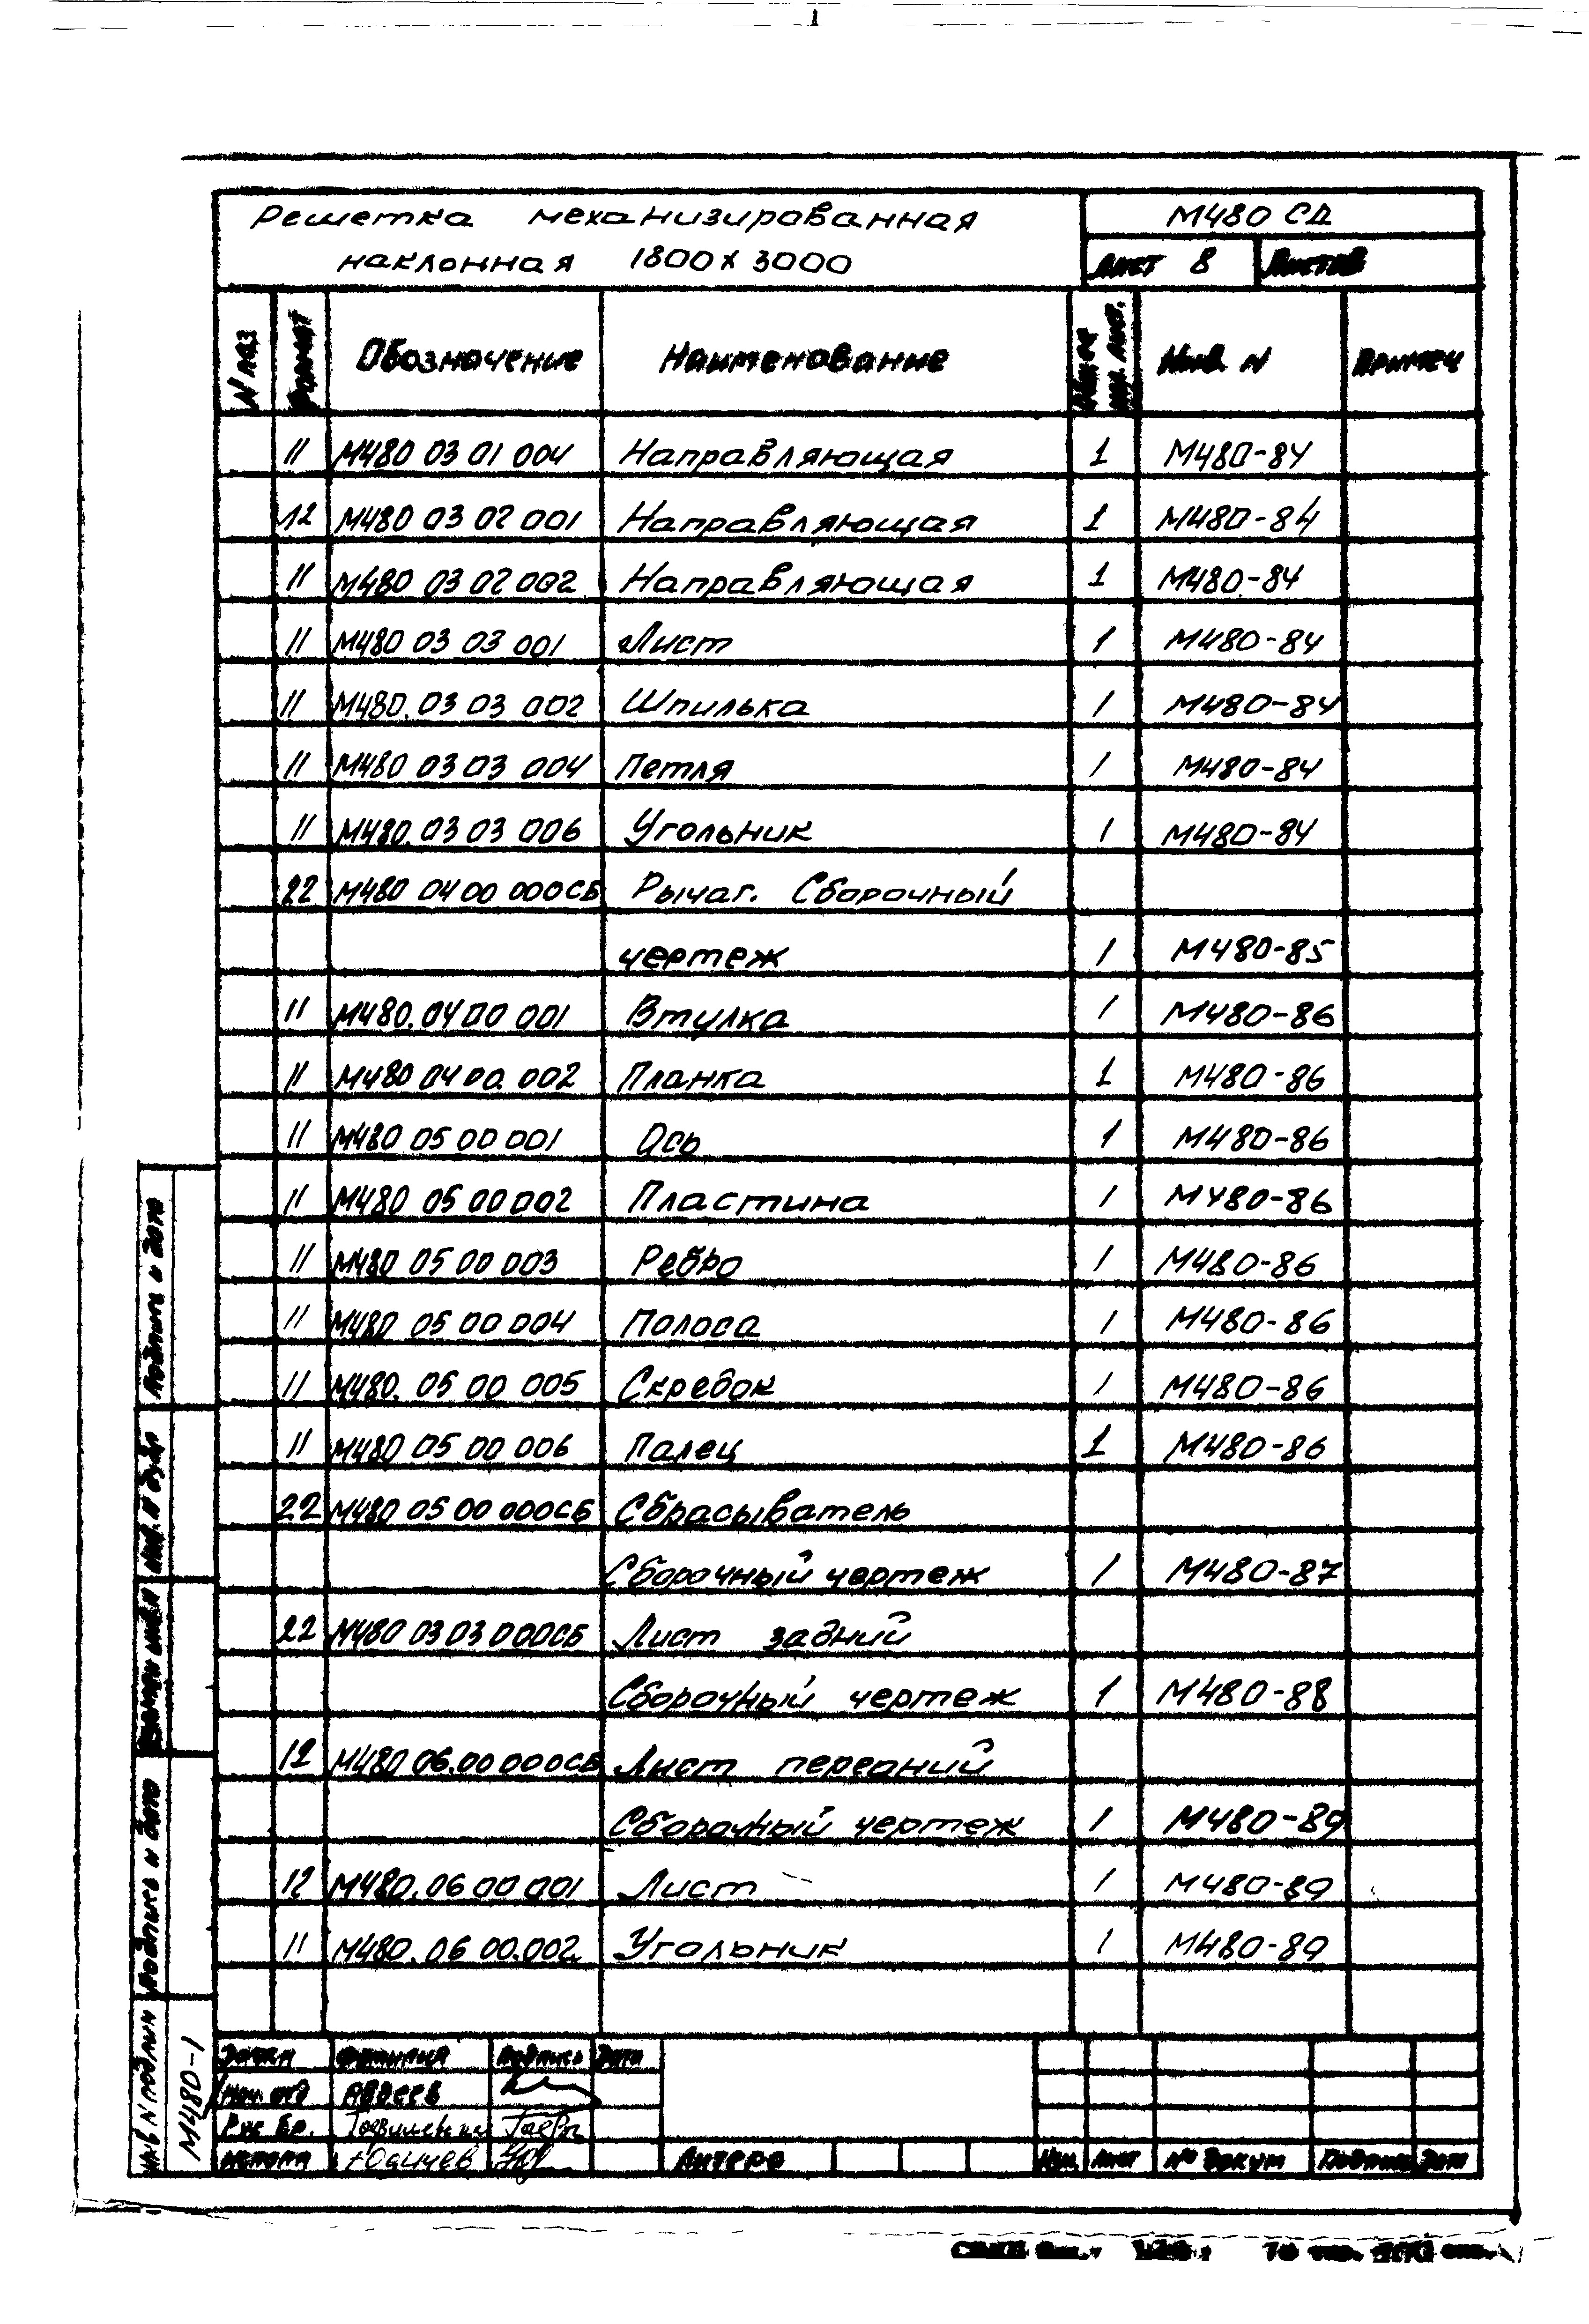 Решетка механизированная
М480 СД
наклонная 1800 х 3000
лист 8 Листов
N паз Формат Обозначение Наименование Инв. N Примеч
11 М480 03 01 004 Направляющая 1 М480-84
12 М480 03 02 001 Направляющая 1 М480-84
11 М480 03 02 002 Направляющая 1 М480-84
11 М480 03 03 001 Лист 1 М480-84
11 М480. 03 03 002 Шпилька 1 М480-84
11 М480 03 03 004 Петля 1 М480-84
11 М480. 03 03 006 Угольник 1 М480-84
22 М480 04 00 000СБ Рычаг. Сборочный
чертеж 1 М480-85
11 М480. 04 00 001 Втулка 1 М480-86
11 М480 04 00. 002 Планка 1 М480-86
11 М480 05 00 001 Ось 1 М480-86
11 М480 05 00 002 Пластина 1 М480-86
11 М480 05 00 003 Ребро 1 М480-86
11 М480 05 00 004 Полоса 1 М480-86
11 М480. 05 00 005 Скребок 1 М480-86
11 М480 05 00 006 Палец 1 М480-86
22 М480 05 00 000СБ Сбрасыватель
Сборочный чертеж 1 М480-87
22 М480 03 03 000СБ Лист задний
Сборочный чертеж 1 М480-88
12 М480 06.00 000СБ Лист передний
Сборочный чертеж 1 М480-89
12 М480. 06 00 001 Лист 1 М480-89
11 М480. 06 00.002 Угольник 1 М480-89
Подпись и дата
Инв. N дубл
Взамен инв N
Подпись и дата
Инв N подлин
М480-1
Фамилия Подпись Дата
Нач. отд Авдеев
Рук бр.
Юдичев
Литера
Изм Лист № докум Подпись Дата